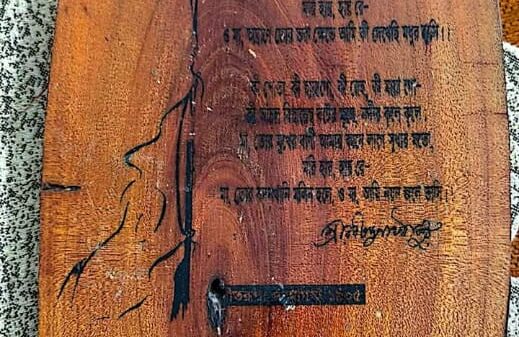 মরি হায়, হায় রে-
ও মা, অঘ্রাণে তোর ভরা ক্ষেতে আমি কী দেখেছি মধুর হাসি।।
কী শোভা, কী ছায়া গো, কী স্নেহ, কী মায়া গো-
কী আঁচল বিছায়েছ বটের মূলে, নদীর কূলে কূলে।
মা, তোর মুখের বাণী আমার কানে লাগে সুধার মতো,
মরি হায়, হায় রে-
মা, তোর বদনখানি মলিন হলে, ও মা, আমি নয়ন জলে ভাসি।।